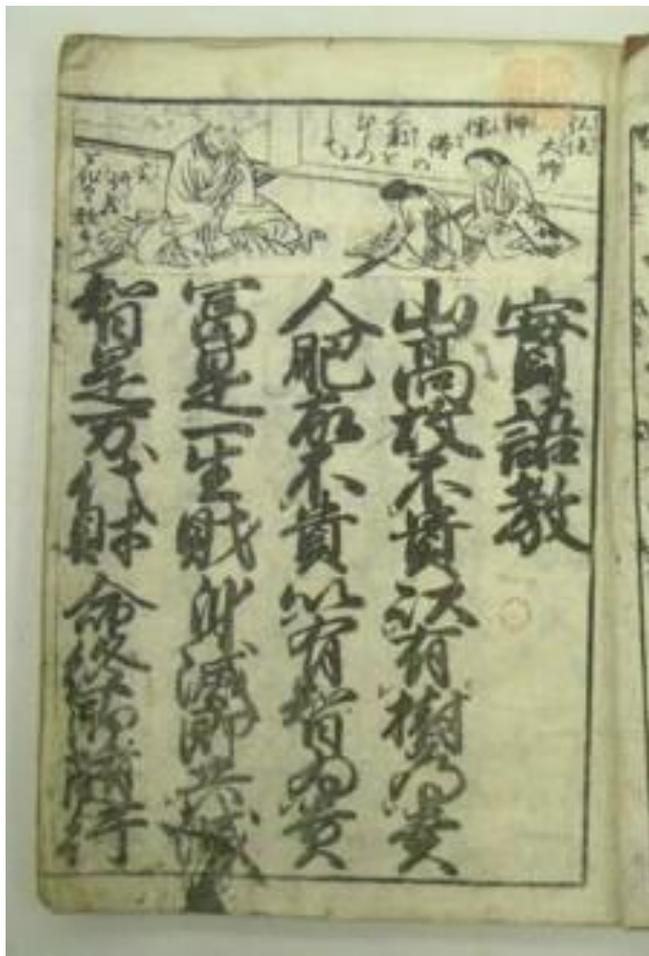 弘法
大師
實語教
山高故不貴以有樹為貴
人肥故不貴以有智為貴
冨是一生財身滅即共滅
智是万代財命終即随行